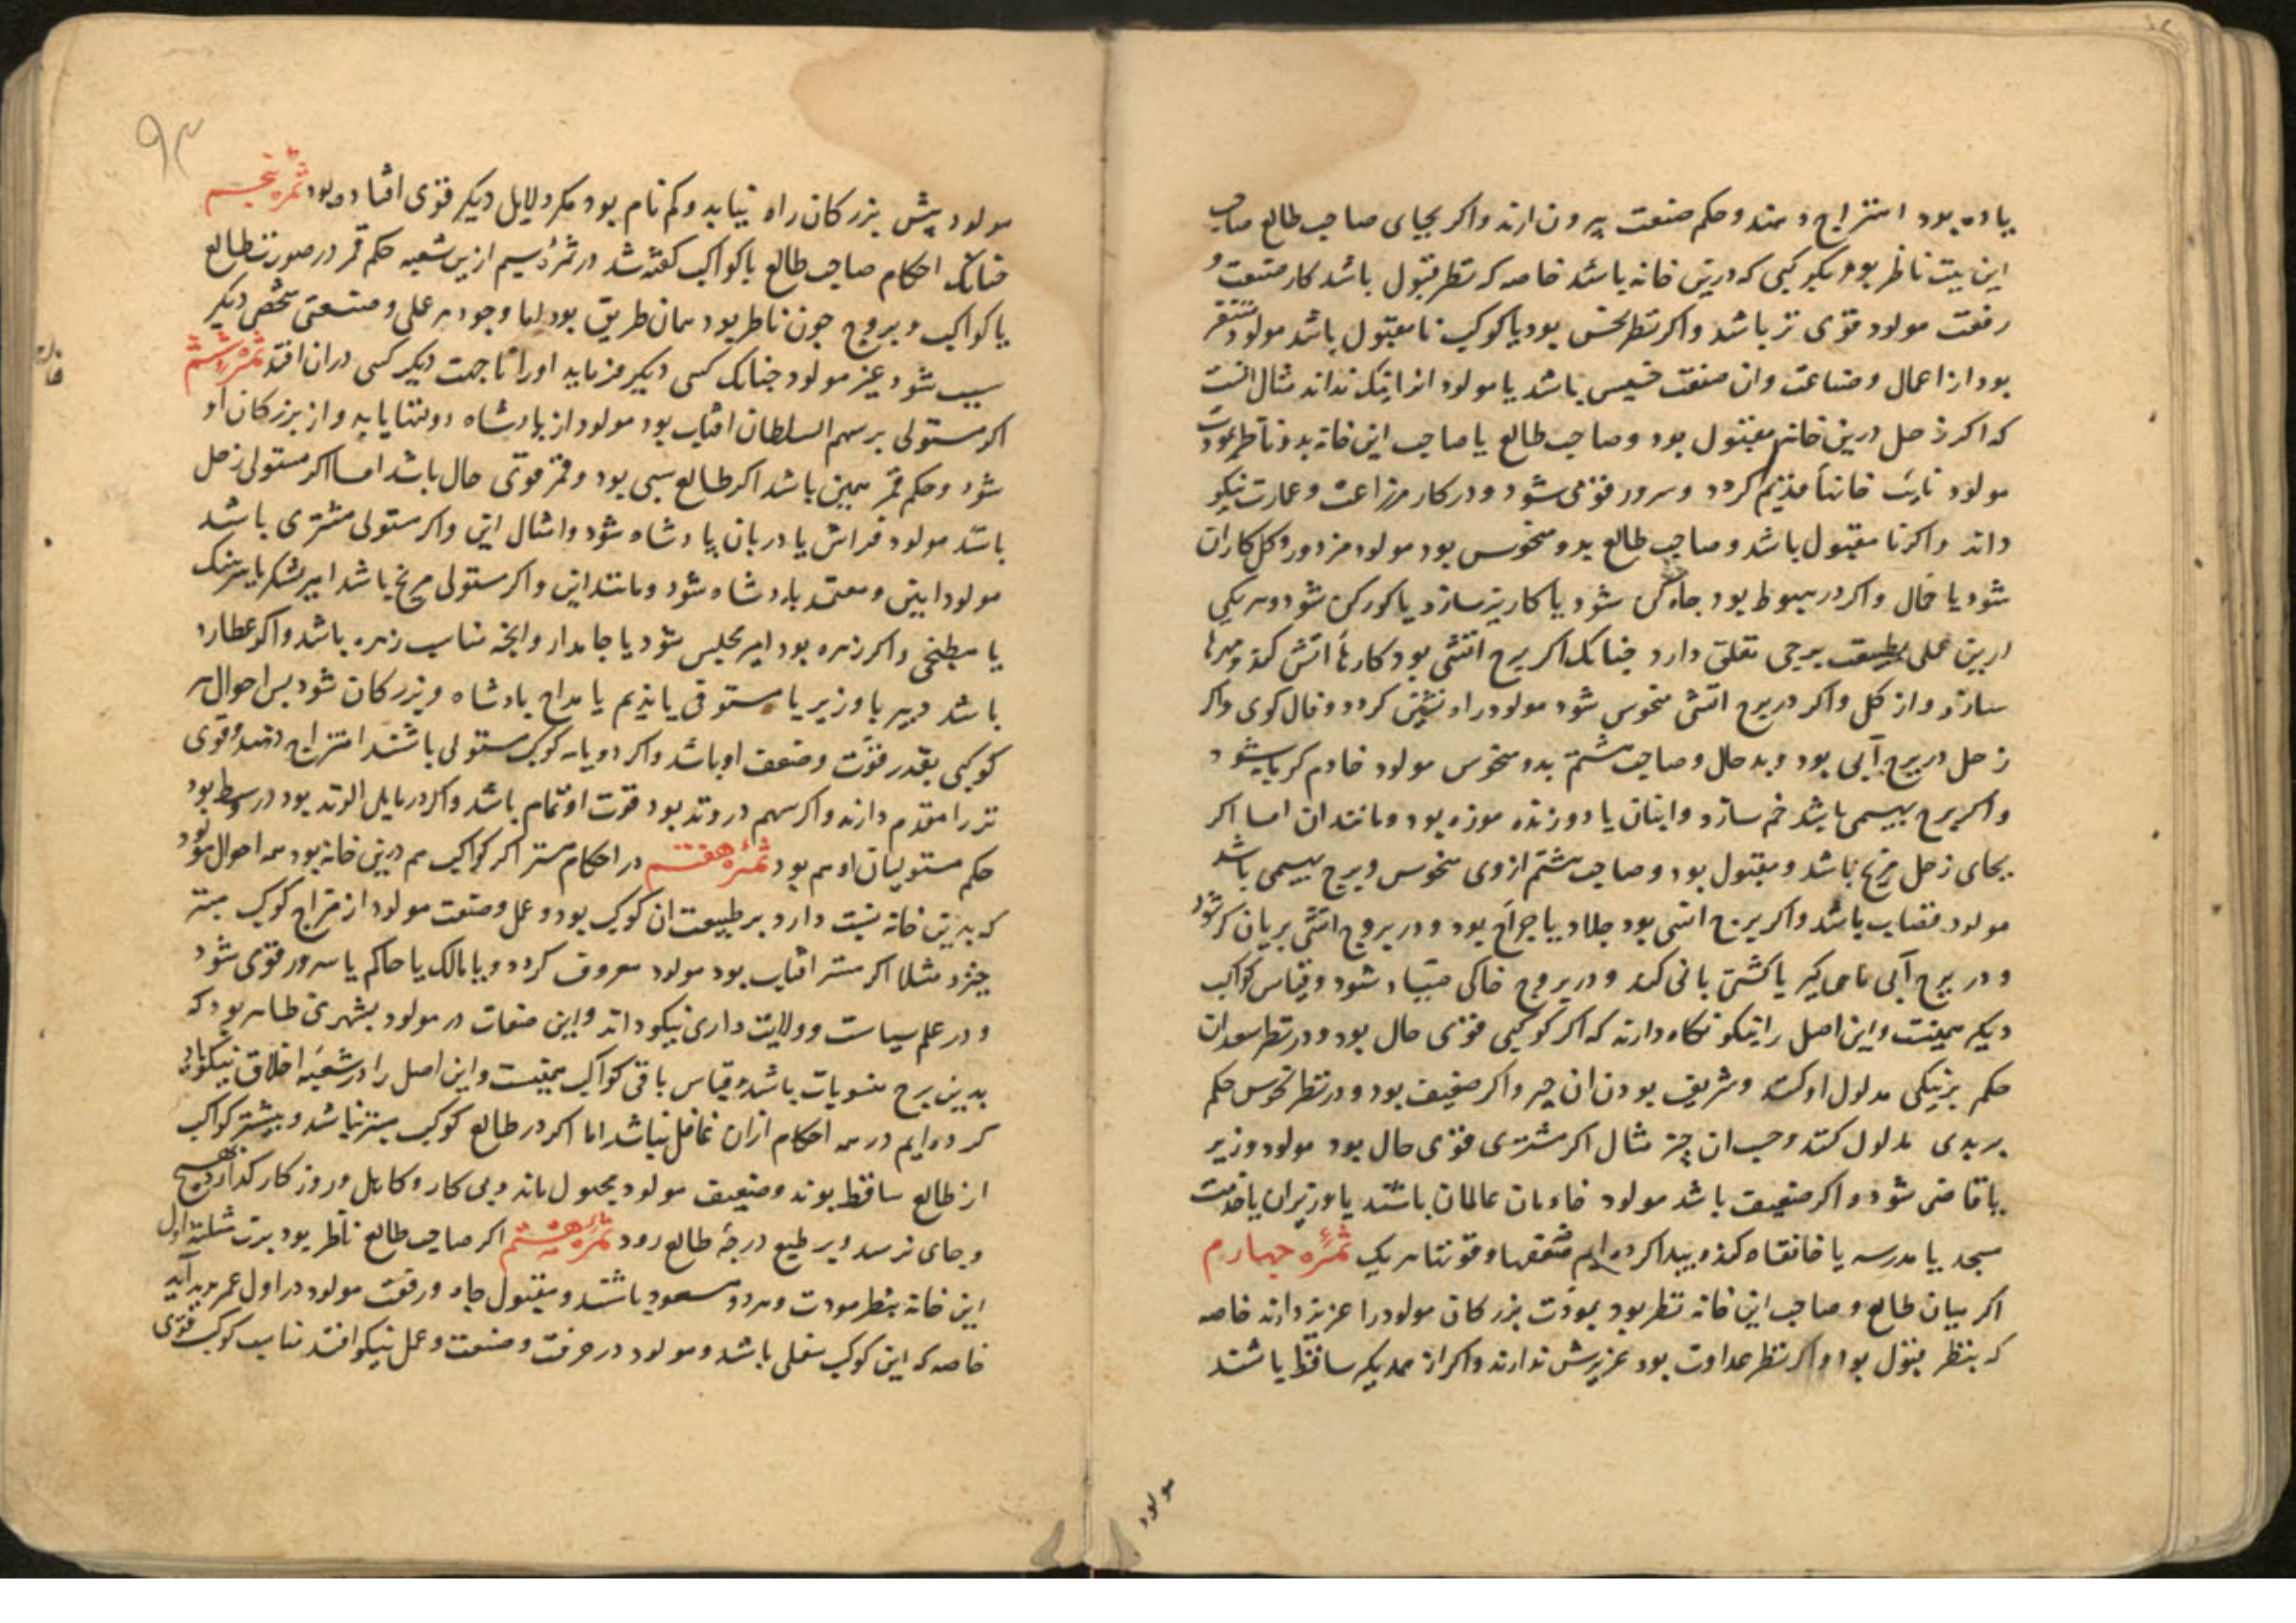 یا ده بود امتزاج دهند و حکم صنعت بیرون ارند واکر بجای صاحب طالع صاحب
این بیت ناظر بود بکوکبی که درین خانه باشد خاصه که نظر قبول باشد کار صنعت و
رفعت مولود قوی تر باشد واکر نظر نحس بود یا کوکب نا مقبول باشد مولود متنفر
بود از اعمال و صناعت وان صنعت خسیس باشد یا مولود انرا نیک نداند مثال انست
که اکر زحل درین خانه مقبول بود و صاحب طالع یا صاحب این خانه بدو ناظر بمودت
مولود نایب خاندانها قدیم کردد و سرور قومی شود و در کار مزراعت و عمارت نیکو
داند واکر نا مقبول باشد و صاحب طالع بدو منحوس بود مولود مزدور و کل کاران
شود یا حمال واکر در هبوط بود چاه کن شود یا کاریز سازد یا کورکن شود و هر یکی
ازین عملی بطبیعت برجی تعلق دارد چنانک اکر برج اتشی بود کارها اتش کند و مهرها
سازد از کل واکر در برج اتشی منحوس شود مولود راه نشین کردد و فال کوی واکر
زحل در برج آبی بود و بد حال و صاحب هشتم بدو منحوس مولود خادم کرمابه شود
واکر برج بهیمی باشد خم سازد وانبان یا دوزنده موزه بود و مانند ان اما اکر
بجای زحل مریخ باشد و مقبول بود و صاحب هشتم از وی منحوس و برج بهیمی باشد
مولود قصاب باشد واکر برج انسی بود جلاد یا جراح بود و در بروج اتشی بریان کر شود
و در برج آبی ماهی کیر یا کشتی بانی کند و در بروج خاکی صیاد شود و قیاس کواکب
دیکر همینست و این اصل را نیکو نکاه دارند که اکر کوکبی قوی حال بود و در نظر سعدان
حکم بر نیکی مدلول او کنند و شریف بودن ان چیز واکر ضعیف بود و در نظر نحوس حکم
بر بدی مدلول کنند و خسب ان چیز مثال اکر مشتری قوی حال بود مولود وزیر
یا قاضی شود واکر ضعیف باشد مولود خادمان عالمان باشند یا وزیران یا خدمت
مسجد یا مدرسه یا خانقاه کند و پیدا کرده ایم ضعفها و قوتها هر یک ثمرهٔ چهارم
اکر میان طالع و صاحب این خانه نظر بود بمودت بزرکان مولود را عزیز دارند خاصه
که بنظر قبول بود واکر نظر عداوت بود عزیزش ندارند واکر از همدیکر ساقط باشند
مولود
۹۳
مولود پیش بزرکان راه نیابد و کم نام بود مکر دلایل دیکر قوی افتاده بود ثمره پنجم
چنانک احکام صاحب طالع با کواکب کفته شد در ثمرهٔ سیم ازین شعبه حکم قمر در صورت طالع
با کواکب و بروج چون ناظر بود همان طریق بود اما وجود هر عملی و صنعتی شخصی دیکر
سبب شود غیر مولود چنانک کسی دیکر فرماید او را تا جهت دیکر کسی دران افتد ثمره ششم
اکر مستولی بر سهم السلطان افتاب بود مولود از پادشاه دولتها یابد و از بزرکان او
شود و حکم قمر همین باشد اکر طالع شبی بود و قمر قوی حال باشد اما اکر مستولی زحل
باشد مولود فراش یا دربان پادشاه شود و امثال این واکر مستولی مشتری باشد
مولود امین و معتمد پادشاه شود و مانند این واکر مستولی مریخ باشد امیر لشکر یا سرهنک
یا مطبخی واکر زهره بود امیر مجلس شود یا جامدار وانچه مناسب زهره باشد واکر عطارد
باشد دبیر یا وزیر یا مستوفی یا ندیم یا مداح پادشاه و بزرکان شود پس احوال هر
کوکبی بقدر قوت و ضعف او باشد واکر دو یا سه کوکب مستولی باشند امتزاج دهند و قوی
تر را مقدم دارند واکر سهم در وتد بود قوت او تمام باشد واکر در مایل الوتد بود در وسط بود
حکم مستولیان او هم بود ثمرهٔ هفتم در احکام مبتز اکر کواکب هم درین خانه بود همه احوال مولود
که بدین خانه نسبت دارد بر طبیعت ان کوکب بود و عمل و صنعت مولود از مزاج کوکب مبتز
خیزد مثلا اکر مبتز افتاب بود مولود معروف کردد و یا مالک یا حاکم یا سرور قومی شود
و در علم سیاست و ولایت داری نیکو داند و این صفات در مولود بشهرتی ظاهر بود که
بدین برج منسوبات باشد و قیاس باقی کواکب همینست و این اصل را در شعبهٔ اخلاق نیکو یاد
کرده ایم در همه احکام ازان غافل نباشد اما اکر در طالع کوکب مبتز نباشد و بیشتر کواکب
از طالع ساقط بوند و ضعیف مولود مجهول ماند و بی کار و کاهل و روز کار کذارد بهیچ
و جای نرسد و بر طبع درجهٔ طالع رود ثمره هشتم اکر صاحب طالع ناظر بود برب مثلثه اول
این خانه بنظر مودت و هر دو مسعود باشند و مقبول جاه و رفعت مولود در اول عمر بدید آید
خاصه که این کوکب سفلی باشد و مولود در حرفت و صنعت و عمل نیکو افتد مناسب کوکب قوی